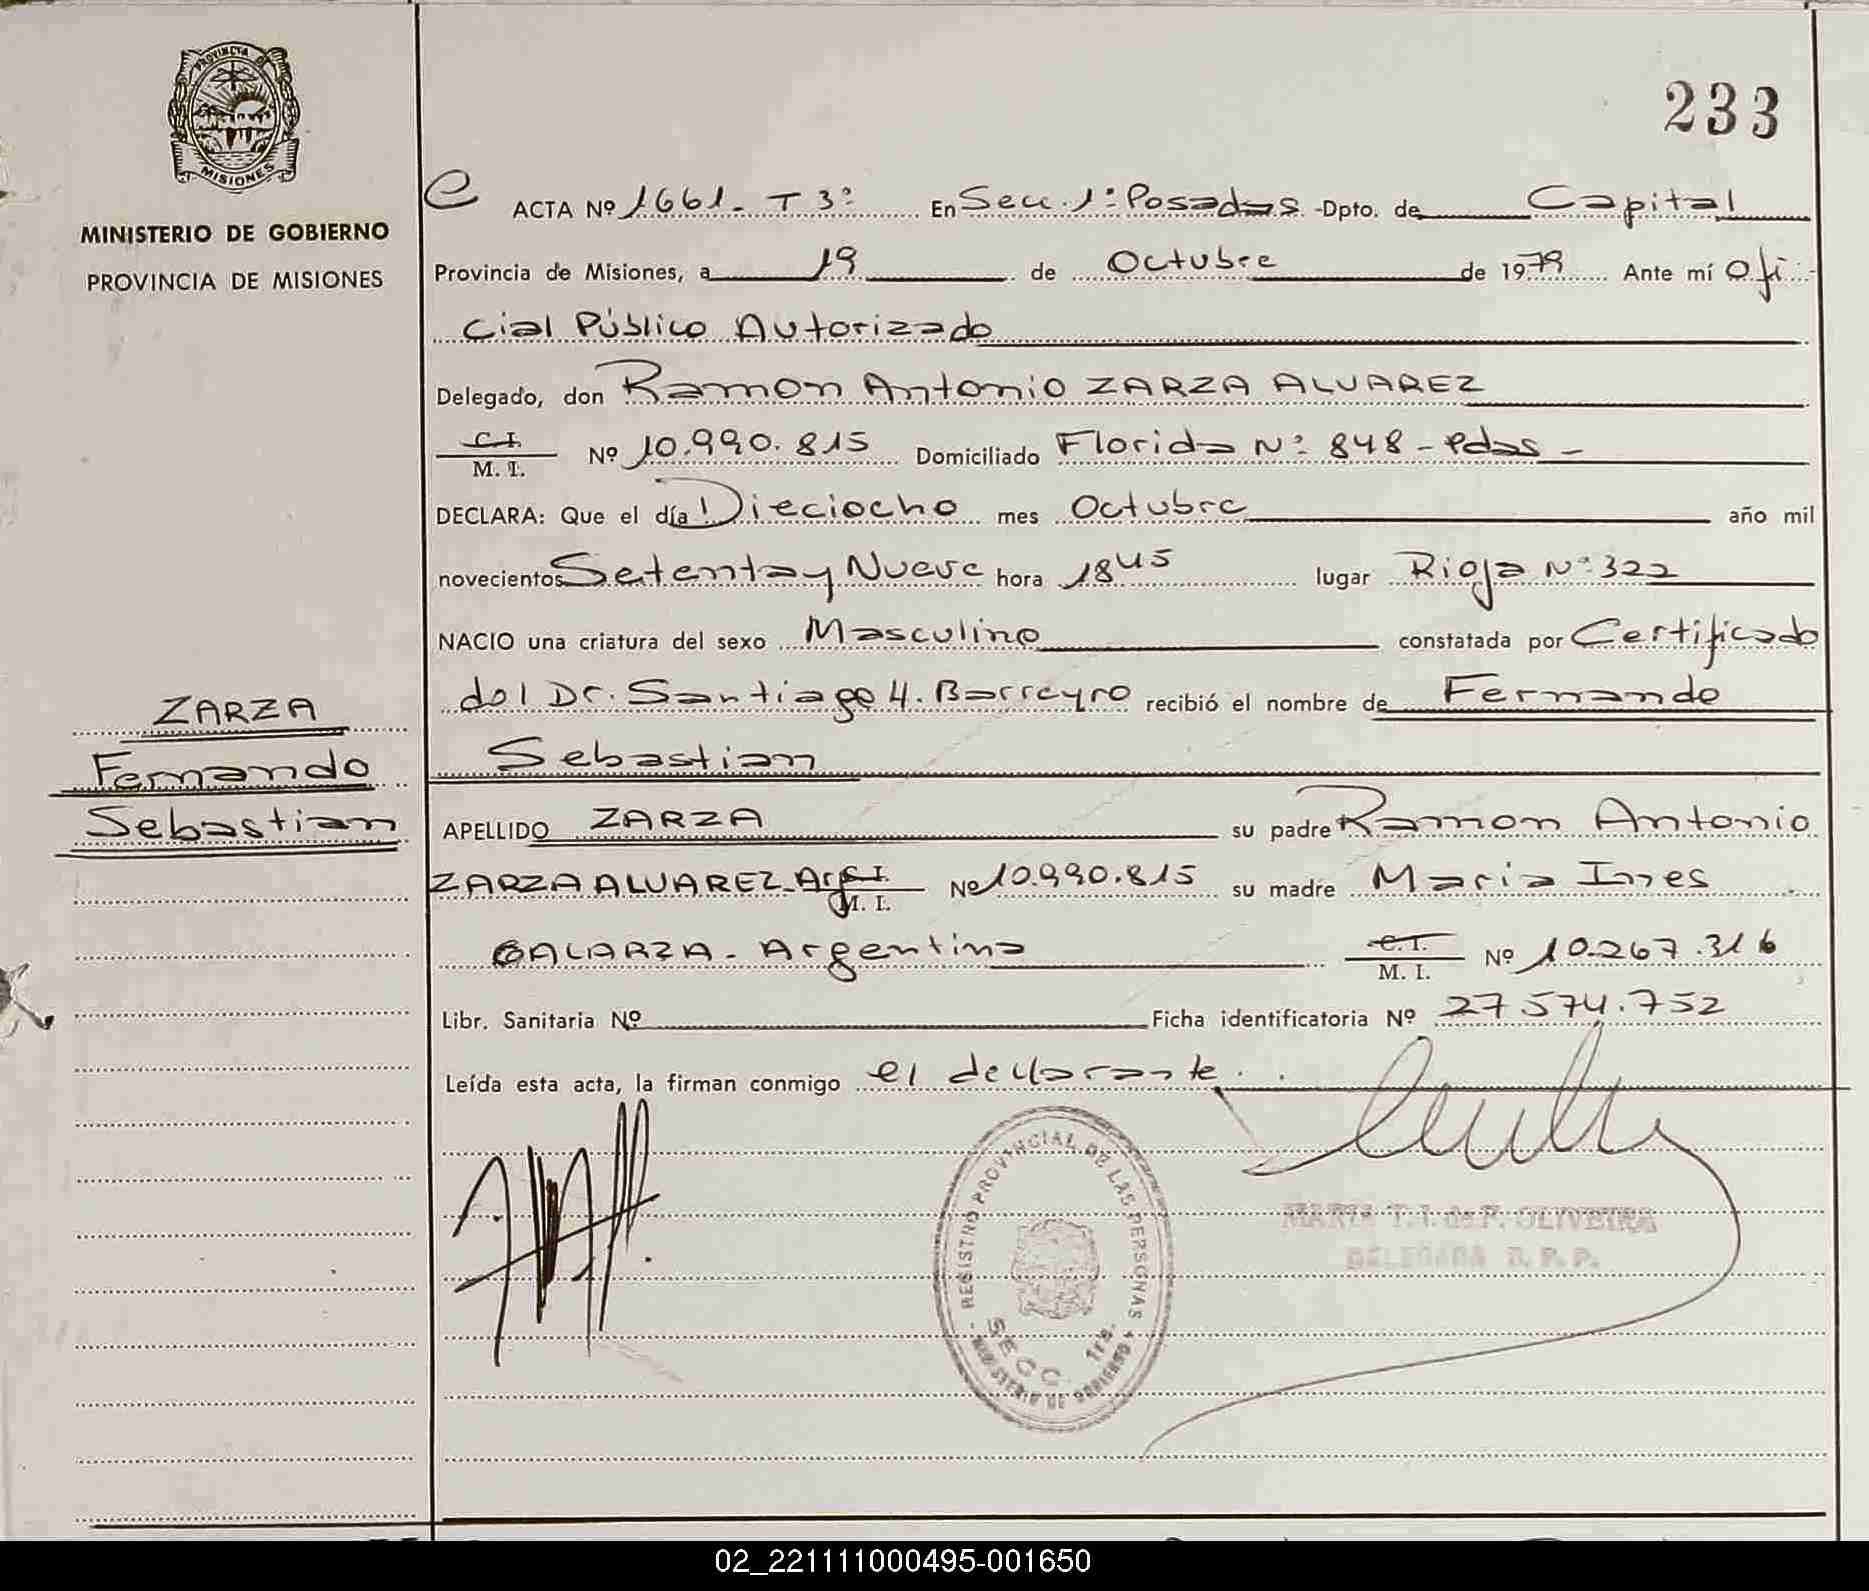 PROVINCIA DE
MISIONES
MINISTERIO DE GOBIERNO
PROVINCIA DE MISIONES
ZARZA
Fernando
Sebastian
233
ACTA Nº 1661 - T 3º En Secc. 1º Posadas - Dpto. de Capital
Provincia de Misiones, a 19 de Octubre de 1979 Ante mí Ofi
cial Público Autorizado
Delegado, don Ramon Antonio ZARZA ALVAREZ
C. I.
M. I. Nº 10.990.815 Domiciliado Florida Nº 848 - Pdas -
DECLARA: Que el día Dieciocho mes Octubre año mil
novecientos Setenta y Nueve hora 18 45 lugar Rioja Nº 322
NACIO una criatura del sexo Masculino constatada por Certificado
del Dr. Santiago H. Barreyro recibió el nombre de Fernando
Sebastian
APELLIDO ZARZA su padre Ramon Antonio
ZARZA ALVAREZ - Arg C. I.
M. I. Nº 10.990.815 su madre Maria Ines
GALARZA - Argentina C. I.
M. I. Nº 10.267.316
Libr. Sanitaria Nº Ficha identificatoria Nº 27.574.752
Leída esta acta, la firman conmigo el declarante.
REGISTRO PROVINCIAL DE LAS PERSONAS
SECC. 1ra.
MINISTERIO DE GOBIERNO
MARIA T. I. de F. OLIVEIRA
DELEGADA R. P. P.
02_221111000495-001650